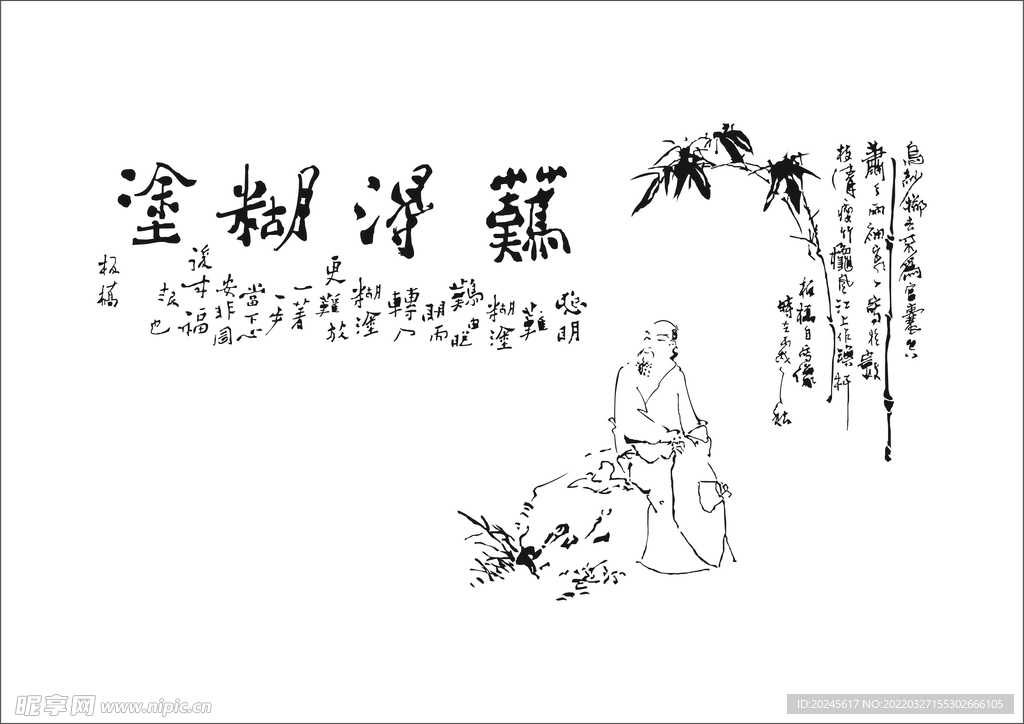 難得糊塗
聰明
難
糊塗
難由聰
明而
轉入
糊塗
更難放
一著
一步
當下心
安非圖
後來福
報也
板橋
烏紗擲去不為官囊
蕭々兩袖寒
枝清瘦竹秋風江上作漁竿
板橋自寫像
時在
昵享网 www.nipic.cn
ID:20245617 NO:20220327155302666105